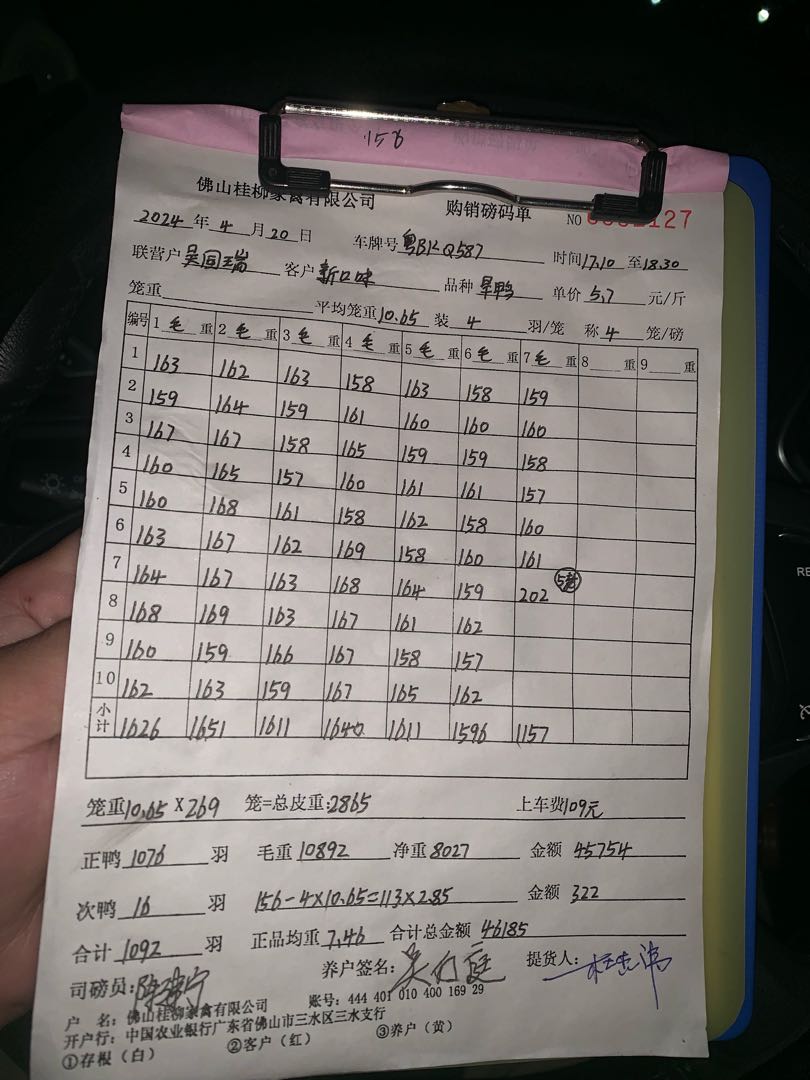 156
佛山桂柳家禽有限公司 购销磅码单 NO 127
2024 年 4 月 20 日 车牌号 粤BKQ587 时间 17.10 至 18.30
联营户 吴国瑞 客户 新口味 品种 旱鸭 单价 5.7 元/斤
笼重 平均笼重 10.65 装 4 羽/笼 称 4 笼/磅
编号 1 毛 重 2 毛 重 3 毛 重 4 毛 重 5 毛 重 6 毛 重 7 毛 重 8 重 9 重
1 163 162 163 158 163 158 159
2 159 164 159 161 160 160 160
3 167 167 158 165 159 159 158
4 160 165 157 160 161 161 157
5 160 168 161 158 162 158 160
6 163 167 162 169 158 160 161
7 164 167 163 168 164 159 202
8 168 169 163 167 161 162
9 160 159 166 167 158 157
10 162 163 159 167 165 162
小计 1626 1651 1611 1640 1611 1596 1157
笼重 10.65 X 269 笼=总皮重: 2865 上车费 109元
正鸭 1076 羽 毛重 10892 净重 8027 金额 45754
次鸭 16 羽 156-4×10.65=113×2.85 金额 322
合计 1092 羽 正品均重 7.46 合计总金额 46185
司磅员: 养户签名: 提货人:
户 名: 佛山桂柳家禽有限公司 账号: 444 401 010 400 169 29
开户行: 中国农业银行广东省佛山市三水区三水支行
①存根（白） ②客户（红） ③养户（黄）